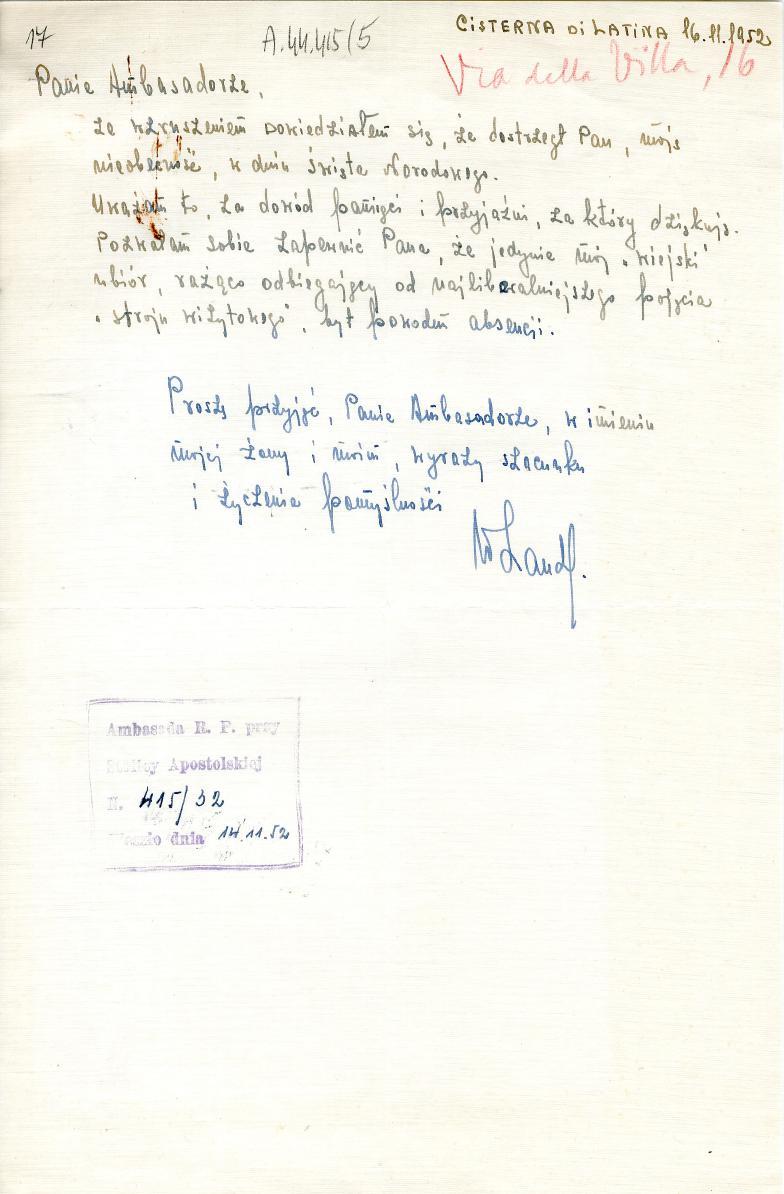 17
A.44.415/5
CISTERNA DI LATINA 16.11.1952
Via della Villa, 16
Panie Ambasadorze,
Ze wzruszeniem dowiedziałem się, że dostrzegł Pan, moję
nieobecność, w dniu święta Narodowego.
Uważam to, za dowód pamięci i przyjaźni, za który dziękuję.
Pozwalam sobie zapewnić Pana, że jedynie mój „wiejski"
ubiór, rażąco odbiegający od najliberalniejszego pojęcia
„stroju wizytowego", był powodem absencji.
Proszę przyjąć, Panie Ambasadorze, w imieniu
mojej żony i moim, wyrazy szacunku
i życzenia pomyślności
Ambasada R. P. przy
Stolicy Apostolskiej
N. 415/32
Weszło dnia 14.11.52